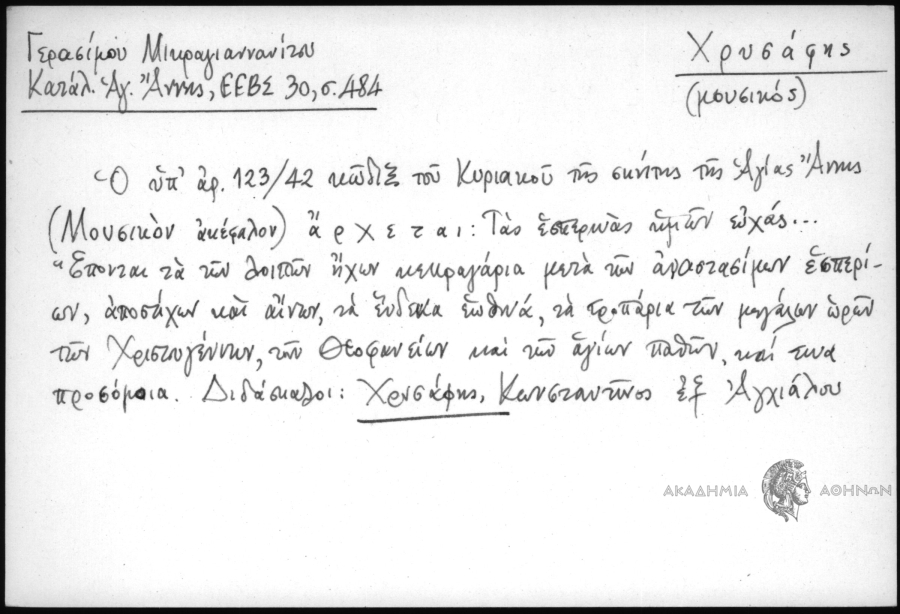 Γερασίμου Μικραγιαννανίτου
Κατάλ. Ἁγ. Ἄννης, ΕΕΒΣ 30, σ. 484
Χρυσάφης
(μουσικός)
Ὁ ὑπ' ἀρ. 123/42 κῶδιξ τοῦ Κυριακοῦ τῆς σκήτης τῆς Ἁγίας Ἄννης
(Μουσικὸν ἀκέφαλον) ἄρχεται: Τὰς ἑσπερινὰς ἡμῶν εὐχάς...
Ἕπονται τὰ τῶν λοιπῶν ἤχων κεκραγάρια μετὰ τῶν ἀναστασίμων ἑσπερί-
ων, ἀποστίχων καὶ αἴνων, τὰ ἕνδεκα ἑωθινά, τὰ τροπάρια τῶν μεγάλων ὡρῶν
τῶν Χριστουγέννων, τῶν Θεοφανείων καὶ τῶν ἁγίων παθῶν, καί τινα
προσόμοια. Διδάσκαλοι: Χρυσάφης, Κωνσταντῖνος ἐξ Ἀγχιάλου
ΑΚΑΔΗΜΙΑ ΑΘΗΝΩΝ